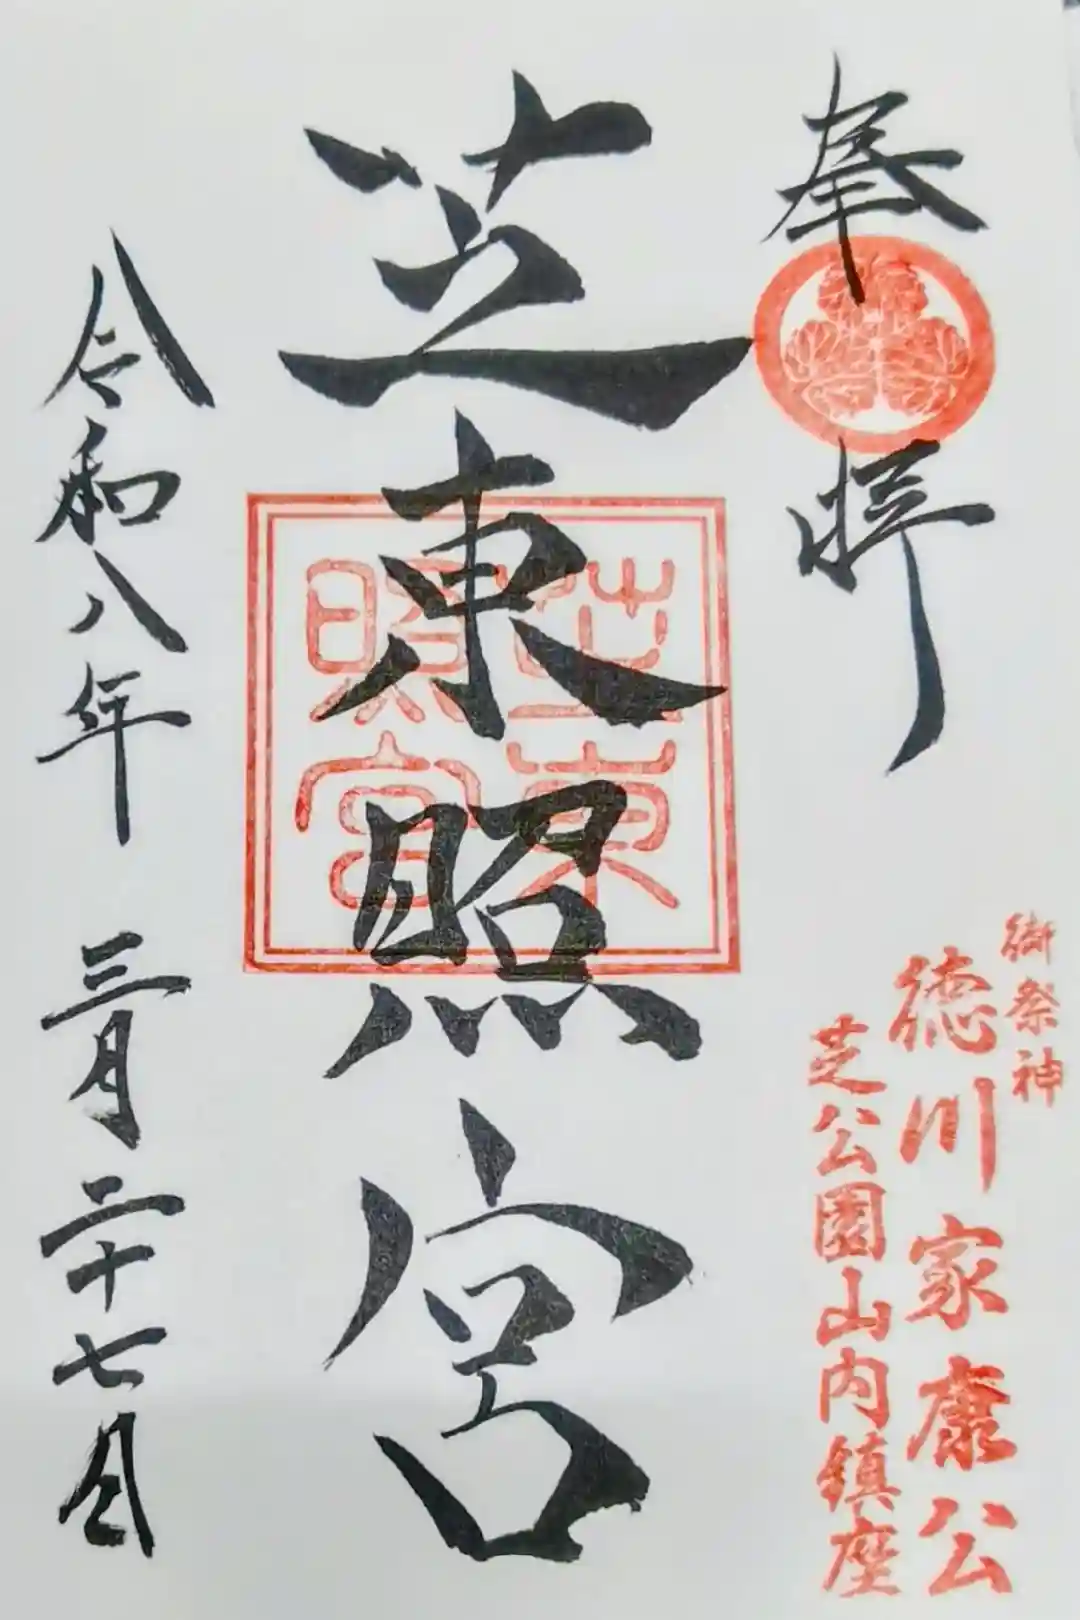 奉拝
御祭神
徳川家康公
芝公園山内鎮座
芝東照宮
芝東
照宮
令和八年 三月二十七日